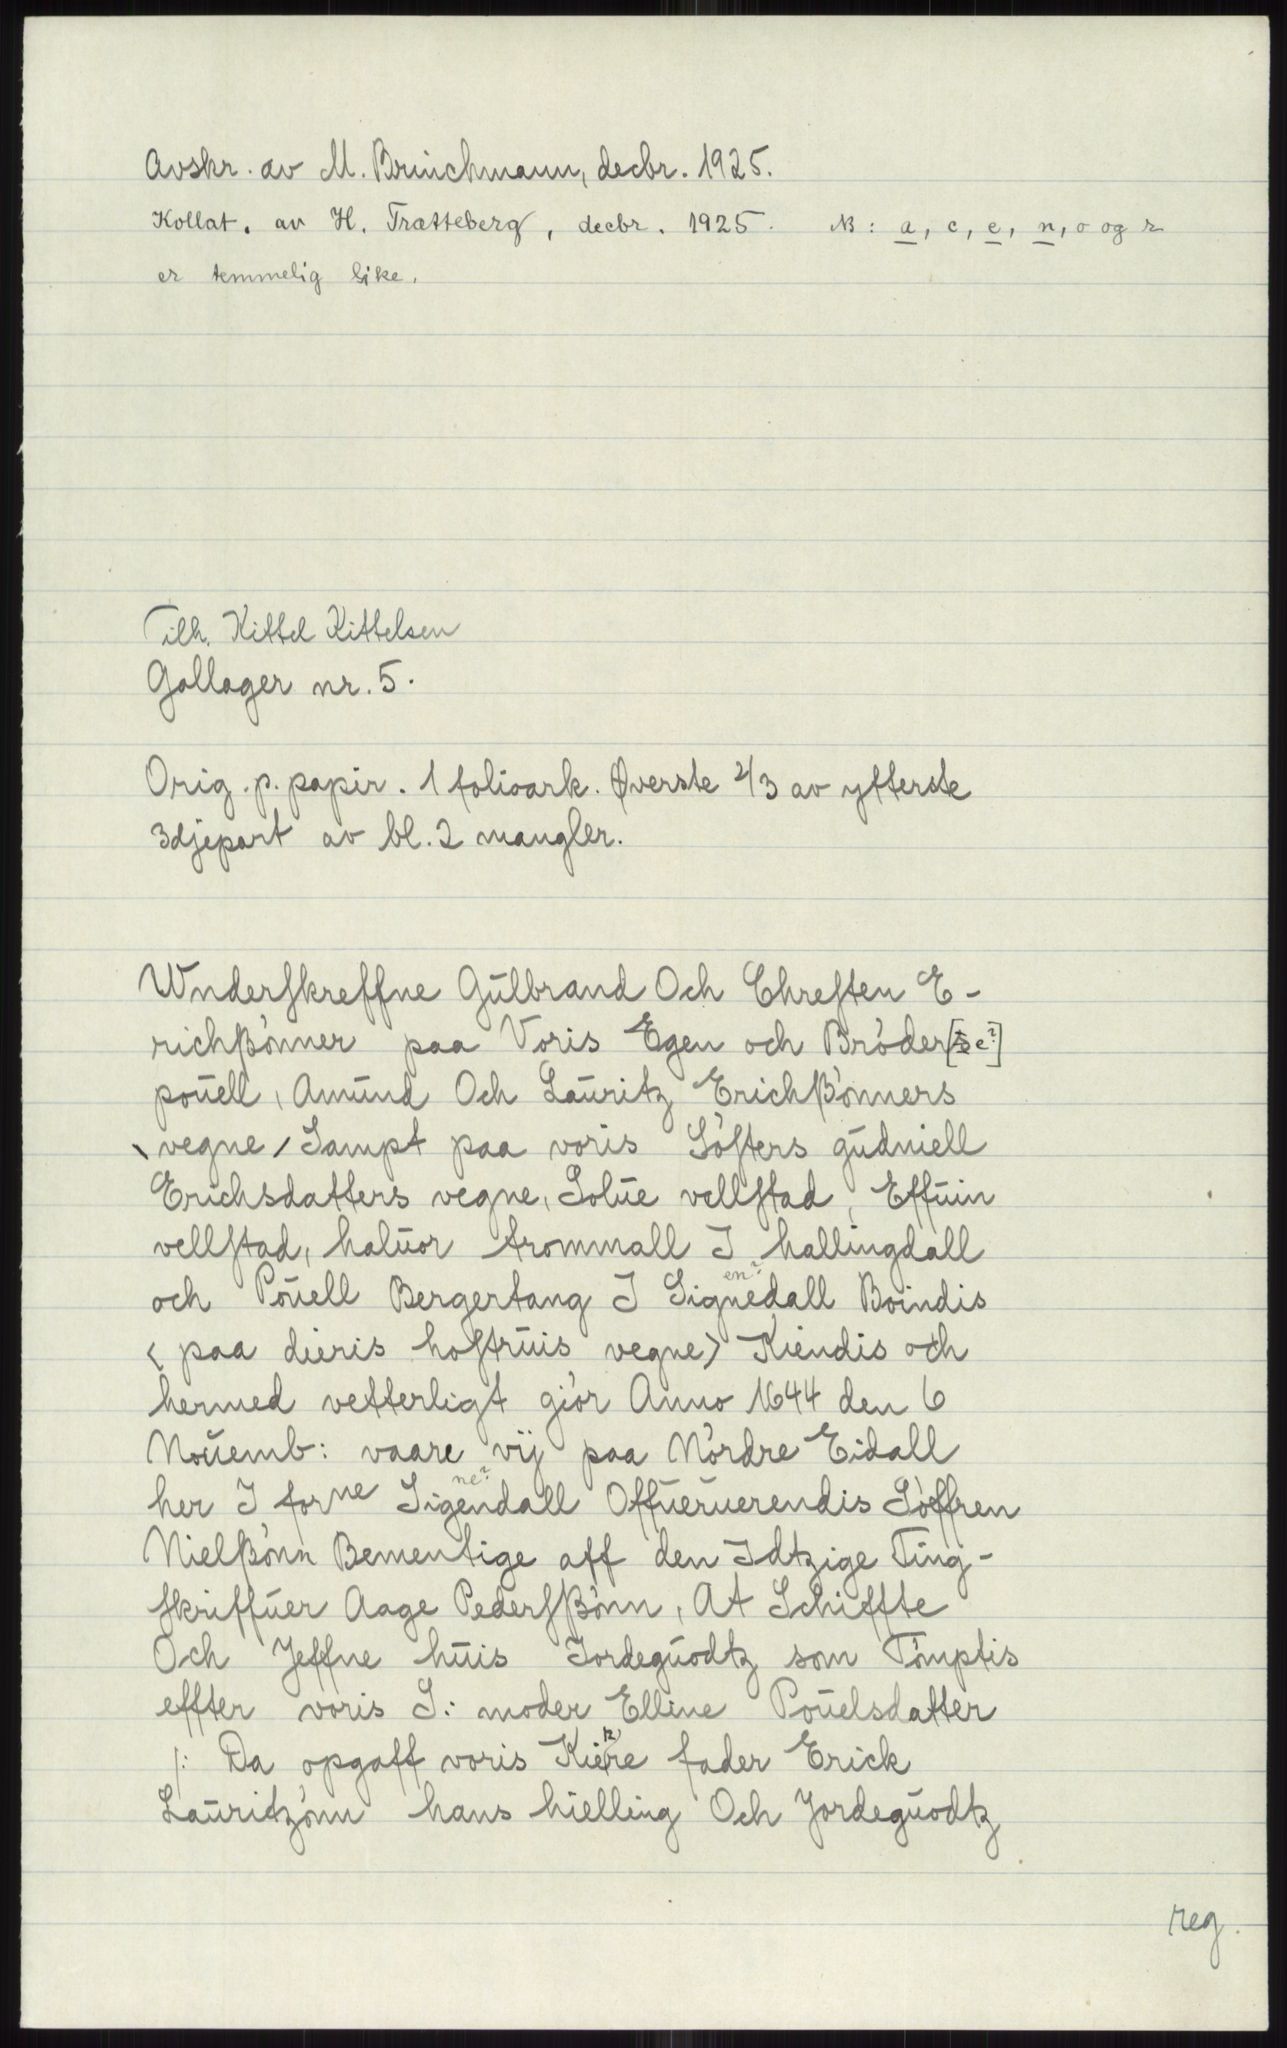 Avskr. av M. Brinchmann, decbr. 1925.
Kollat. av H. Trætteberg, decbr. 1925. NB: a, c, e, n, o og r
er temmelig like.
Tilh. Kittel Kittelsen
Gollager nr. 5.
Orig. p. papir. 1 folioark. Øverste 2/3 av ytterste
3djepart av bl. 2 mangler.
Wnderſkreffne Gŭlbrand Och Chreſten E-
richſsönner paa Voris Egen och Bröder[s e?]
poŭell, Amŭnd Och Laŭritz Erichſsönners
vegne / Sampt paa voris Söſters gŭdniell
Erichsdatters vegne, Solŭe vellſtad, Effŭin
vellſtad, halŭor trommall I hallingdall
och Poŭell Bergertang I Signedall Boindis
en?
< paa dieris hoſtrŭis vegne> Kiendis och
hermed vetterligt giör Anno 1644 den 6
Noŭemb: vaare vij paa Nördre Eidall
her I forne Sigendall Offŭerŭerendis Söffren
ne?
Nielſsönn Bementige aff den Idtzige Ting-
ſkriffŭer Aage Pederſsönn, At Schiffte
Och Jeffne hŭis Jordegŭodtz som Tömptis
effter voris S: moder Elline Poŭelsdatter
/: Da opgaff voris Kiere fader Erick
Laŭritzönn hans hielling Och Jordegŭodtz
reg.